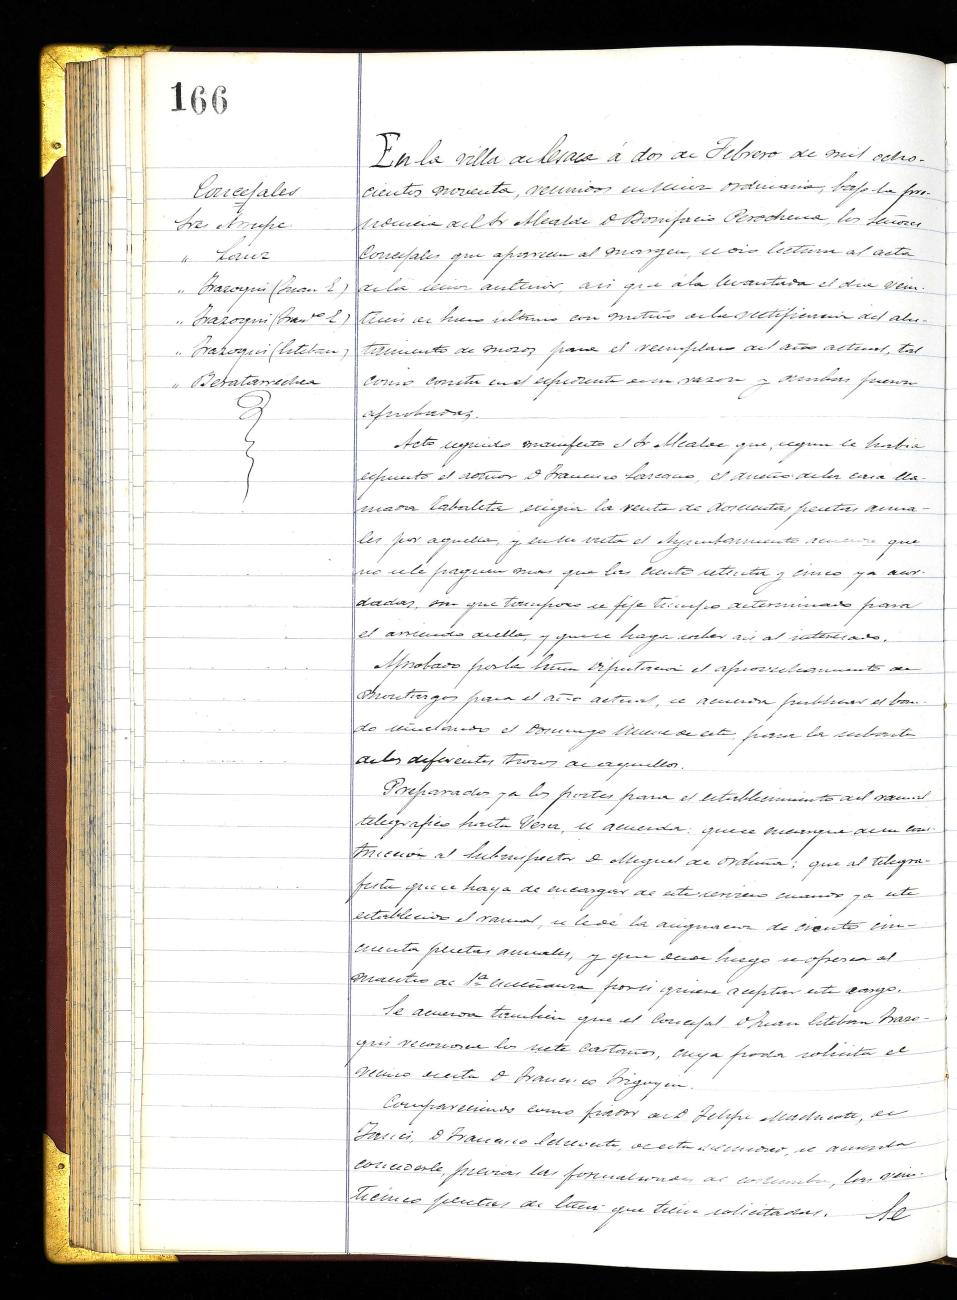 166
Concejales
Sres Arrupe
" Sanz
" Irazoqui (Juan E)
" Irazoqui (Franco L)
" Irazoqui (Esteban)
" Beratarrechea
En la villa de Lesaca á dos de Febrero de mil ocho-
cientos noventa, reunidos en sesion ordinaria, bajo la pre-
sidencia del Sr Alcalde D Bonifacio Perochena, los Señores
Concejales que aparecen al margen, se dio lectura al acta
de la sesion anterior, asi que á la levantada el dia vein-
tiseis de Enero ultimo con motivo de la rectificacion del alis-
tamiento de mozos para el reemplazo del año actual, tal
como consta en el espediente de su razon y ambas fueron
aprobadas.
Acto seguido manifesto el Sr Alcalde que, segun le habia
espuesto el señor D Francisco Lascano, el dueño de la casa lla-
mada Tabaleta exigia la renta de doscientas pesetas anua-
les por aquella, y en su vista el Ayuntamiento acuerda que
no se le paguen mas que las ciento setenta y cinco ya acor-
dadas, sin que tampoco se fije tiempo determinado para
el arriendo de ella, y que se haga saber asi al interesado.
Aprobado por la Excma Diputacion el aprovechamiento de
montazgos para el año actual, se acuerda publicar el ban-
do señalando el Domingo Nueve de este, para la subasta
de los diferentes trozos de aquellos.
Preparados ya los postes para el establecimiento del ramal
telegrafico hasta Vera, se acuerda: que se encargue de su cons-
truccion al Subinspector D Miguel de Orduña; que al telegra-
fista que se haya de encargar de este servicio cuando ya este
establecido el ramal, se le dé la asignacion de ciento cin-
cuenta pesetas anuales, y que desde luego se ofrezca al
maestro de 1ª enseñanza por si quiere aceptar este cargo.
Se acuerda tambien que el Concejal D Juan Esteban Irazo-
qui reconozca los siete Castaños, cuya poda solicita el
vecino de esta D Francisco Irigoyen.
Compareciendo como fiador de D Felipe de
Yanci, D Francisco de esta vecindad, se acuerda
concederle, previas las formalidades de costumbre, las vein-
ticinco pesetas de que tiene solicitadas. Se